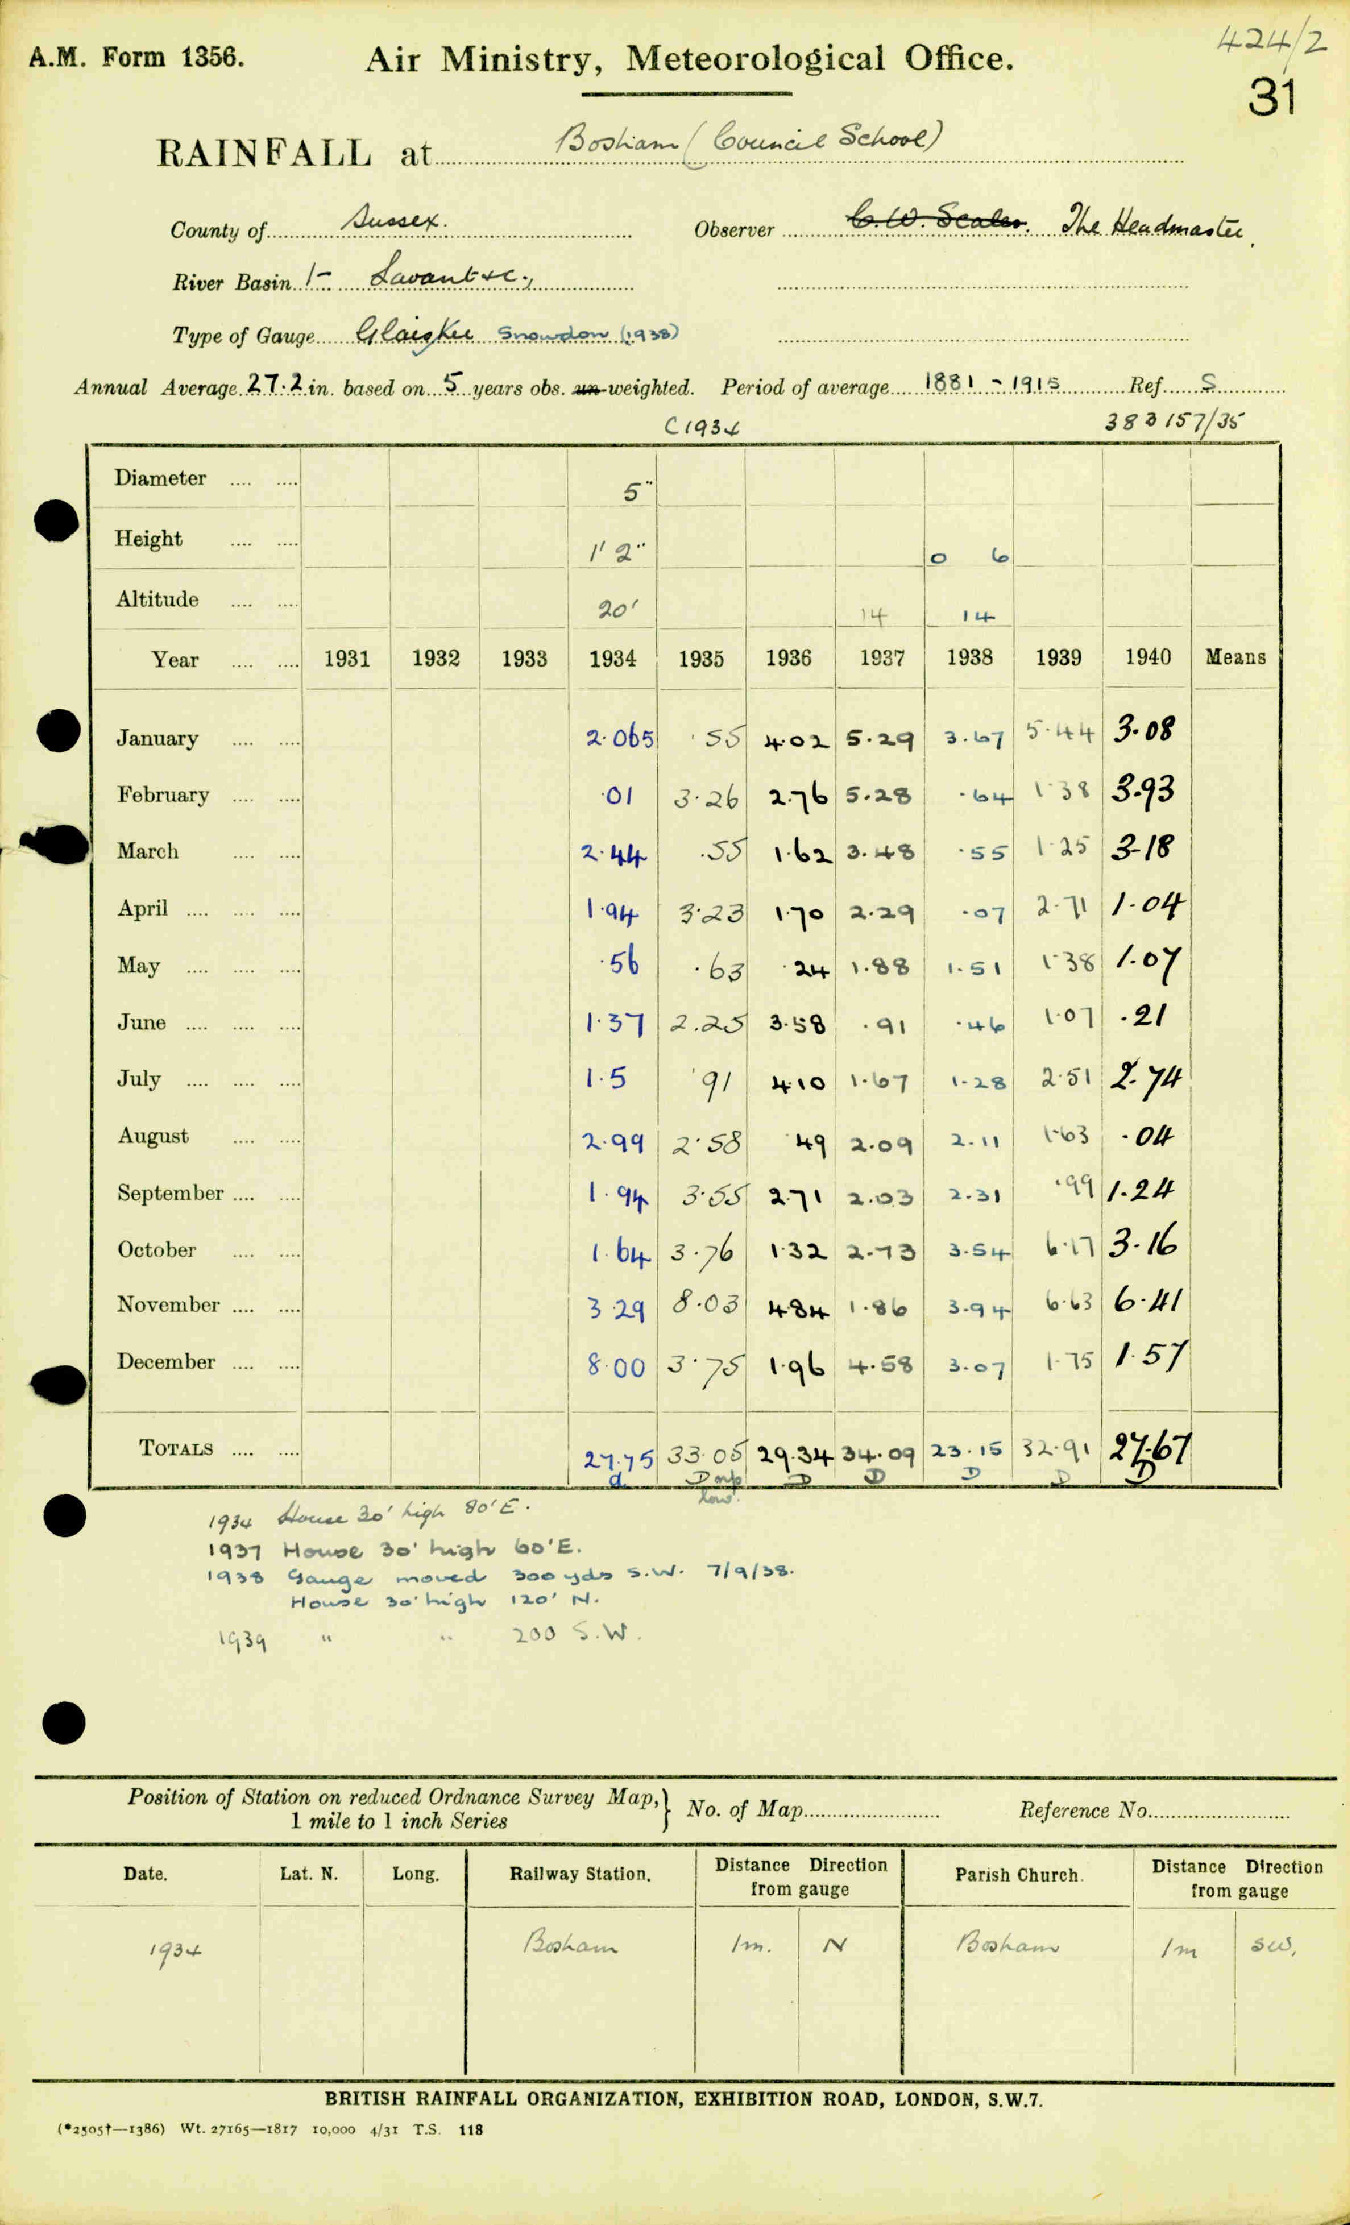 424/2
A.M. Form 1356. Air Ministry, Meteorological Office.
31
RAINFALL at Bosham (Council School)
County of Sussex. Observer C.W. Scales. The Headmaster.
River Basin 1- Lavant &c.,
Type of Gauge Glaisher Snowdon (1938)
Annual Average 27.2 in. based on 5 years obs. un-weighted. Period of average 1881 - 1915 Ref. S
C1934 383157/35
Diameter .... .... 5"
Height .... .... 1' 2" 0 6
Altitude .... .... 20' 14 14
Year .... .... 1931 1932 1933 1934 1935 1936 1937 1938 1939 1940 Means
January .... .... 2.065 .55 4.02 5.29 3.67 5.44 3.08
February .... .... .01 3.26 2.76 5.28 .64 1.38 3.93
March .... .... 2.44 .55 1.62 3.48 .55 1.25 3.18
April .... .... .... 1.94 3.23 1.70 2.29 .07 2.71 1.04
May .... .... .... .56 .63 .24 1.88 1.51 1.38 1.07
June .... .... .... 1.37 2.25 3.58 .91 .46 1.07 .21
July .... .... .... 1.5 .91 4.10 1.67 1.28 2.51 2.74
August .... .... 2.99 2.58 .49 2.09 2.11 1.63 .04
September .... .... 1.94 3.55 2.71 2.03 2.31 .99 1.24
October .... .... 1.64 3.76 1.32 2.73 3.54 6.17 3.16
November .... .... 3.29 8.03 4.84 1.86 3.94 6.63 6.41
December .... .... 8.00 3.75 1.96 4.58 3.07 1.75 1.57
TOTALS .... .... 27.75 33.05 29.34 34.09 23.15 32.91 27.67
d D D D D D D
low.
1934 House 30' high 80' E.
1937 House 30' high 60' E.
1938 Gauge moved 300 yds S.W. 7/9/38.
House 30' high 120' N.
1939 " " 200 S.W.
Position of Station on reduced Ordnance Survey Map, 1 mile to 1 inch Series } No. of Map Reference No.
Date. Lat. N. Long. Railway Station. Distance Direction from gauge Parish Church. Distance Direction from gauge
1934 Bosham 1m. N Bosham 1m SW.
BRITISH RAINFALL ORGANIZATION, EXHIBITION ROAD, LONDON, S.W.7.
(*2505†—1386) Wt. 27165—1817 10,000 4/31 T.S. 118